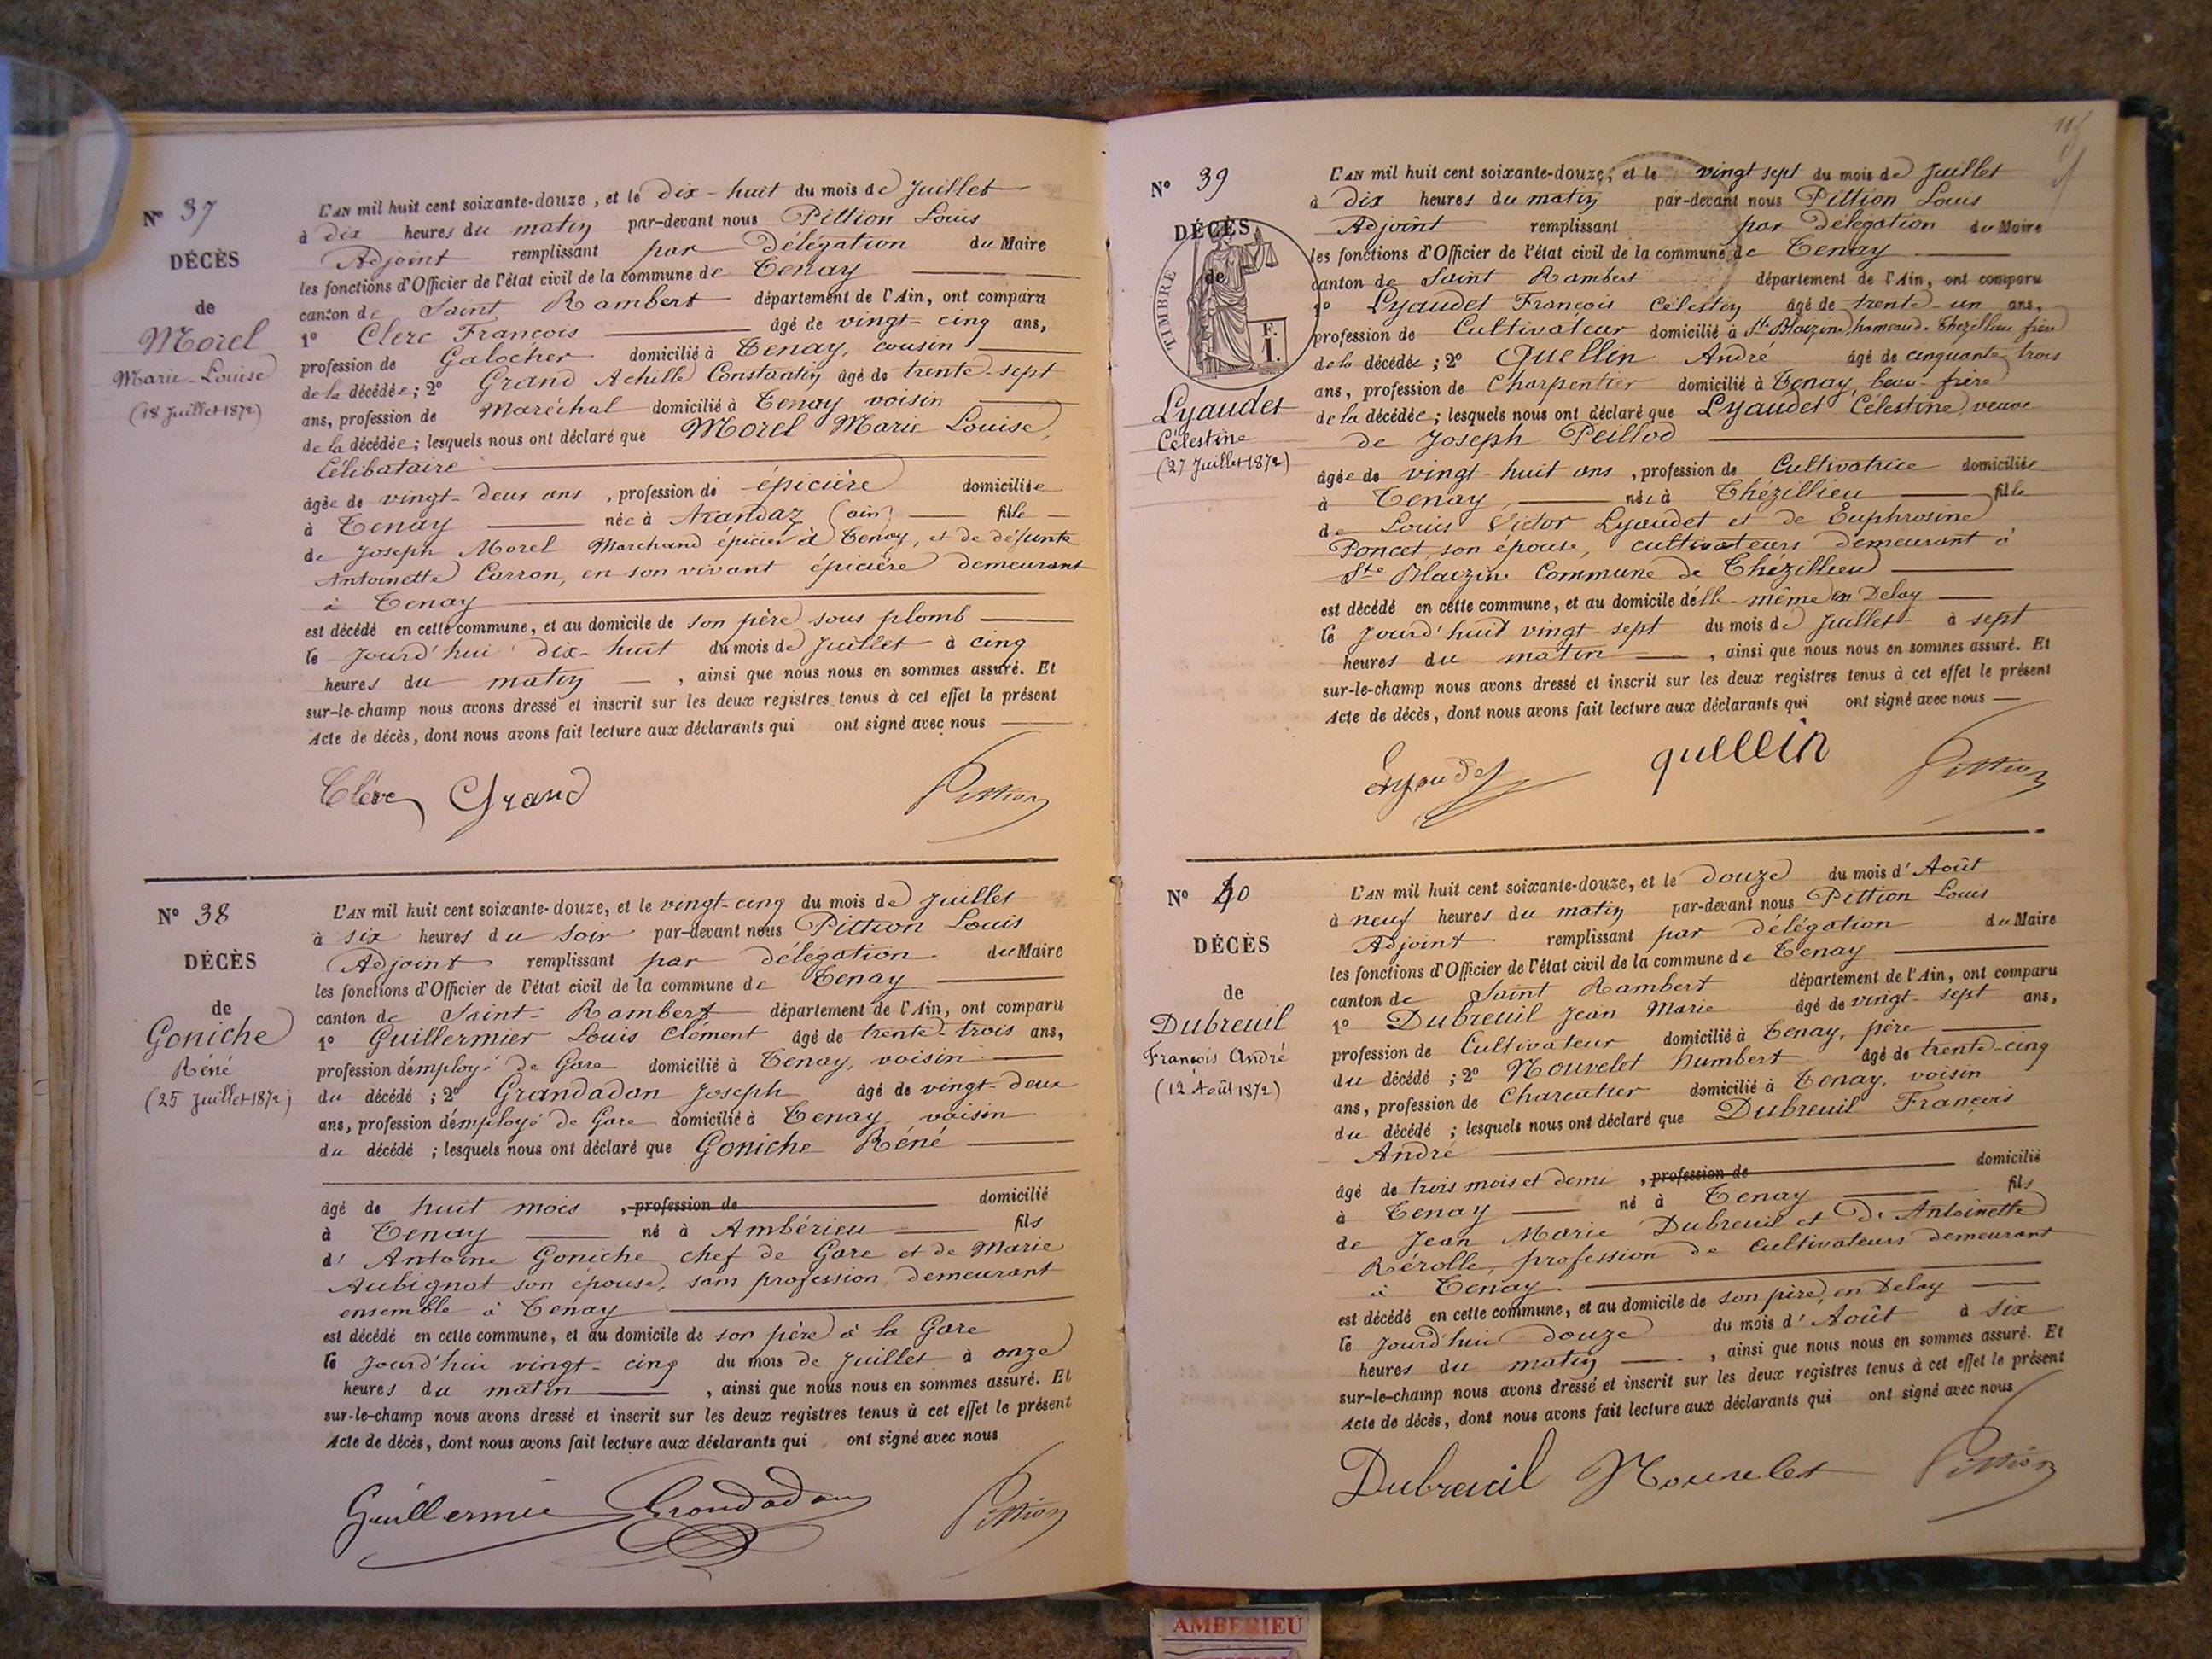 N° 37
DÉCÈS
de
Morel
Marie-Louise
(18 Juillet 1872)
L'AN mil huit cent soixante-douze, et le dix-huit du mois de Juillet
à dix heures du matin par-devant nous Pittion Louis
Adjoint remplissant par Délégation du Maire
les fonctions d'Officier de l'état civil de la commune de Tenay
canton de Saint Rambert département de l'Ain, ont comparu
1° Clerc François âgé de vingt-cinq ans,
profession de Galocher domicilié à Tenay, cousin
de la décédée; 2° Grand Achille Constantin âgé de trente-sept
ans, profession de Maréchal domicilié à Tenay voisin
de la décédée; lesquels nous ont déclaré que Morel Marie Louise,
Célibataire
âgée de vingt-deux ans, profession de épicière domiciliée
à Tenay née à Arandaz (ain) fille
de Joseph Morel Marchand épicier à Tenay, et de défunte
Antoinette Carron, en son vivant épicière demeurant
à Tenay
est décédé en cette commune, et au domicile de son père sous plomb
le jourd'hui dix-huit du mois de Juillet à cinq
heures du matin, ainsi que nous nous en sommes assuré. Et
sur-le-champ nous avons dressé et inscrit sur les deux registres tenus à cet effet le présent
Acte de décès, dont nous avons fait lecture aux déclarants qui ont signé avec nous
Grand Pittion
N° 38
DÉCÈS
de
Goniche
Réné
(25 Juillet 1872)
L'AN mil huit cent soixante-douze, et le vingt-cinq du mois de Juillet
à six heures du soir par-devant nous Pittion Louis
Adjoint remplissant par délégation du Maire
les fonctions d'Officier de l'état civil de la commune de Tenay
canton de Saint-Rambert département de l'Ain, ont comparu
1° Guillermier Louis Clément âgé de trente-trois ans,
profession d'employé de Gare domicilié à Tenay, voisin
du décédé; 2° Grandadan Joseph âgé de vingt-deux
ans, profession d'employé de Gare domicilié à Tenay, voisin
du décédé; lesquels nous ont déclaré que Goniche Réné
âgé de huit mois, profession de domicilié
à Tenay né à Ambérieu fils
d'Antoine Goniche chef de Gare et de Marie
Aubignat son épouse, sans profession, demeurant
ensemble à Tenay
est décédé en cette commune, et au domicile de son père à la Gare
le jourd'hui vingt-cinq du mois de Juillet à onze
heures du matin, ainsi que nous nous en sommes assuré. Et
sur-le-champ nous avons dressé et inscrit sur les deux registres tenus à cet effet le présent
Acte de décès, dont nous avons fait lecture aux déclarants qui ont signé avec nous
Guillermie Grandadan Pittion
N° 39
DÉCÈS
de
TIMBRE
F.
I.
Lyaudet
Célestine
(27 Juillet 1872)
L'AN mil huit cent soixante-douze, et le vingt sept du mois de Juillet
à dix heures du matin par-devant nous Pittion Louis
Adjoint remplissant par délégation du Maire
les fonctions d'Officier de l'état civil de la commune de Tenay
canton de Saint Rambert département de l'Ain, ont comparu
1° Lyaudet François Célestin âgé de trente-un ans,
profession de Cultivateur domicilié à Ste Blaizine, hameau de Thézillieu frère
de la décédée; 2° Quellin André âgé de cinquante-trois
ans, profession de Charpentier domicilié à Tenay, beau-frère
de la décédée; lesquels nous ont déclaré que Lyaudet Célestine, veuve
de Joseph Peillod
âgée de vingt-huit ans, profession de Cultivatrice domiciliée
à Tenay née à Thézillieu fille
de Louis Victor Lyaudet et de Euphrosine
Poncet, son épouse, cultivateurs demeurant à
Ste Blaizine Commune de Thézillieu
est décédé en cette commune, et au domicile d'elle-même en Delay
le jourd'huit vingt-sept du mois de Juillet à sept
heures du matin, ainsi que nous nous en sommes assuré. Et
sur-le-champ nous avons dressé et inscrit sur les deux registres tenus à cet effet le présent
Acte de décès, dont nous avons fait lecture aux déclarants qui ont signé avec nous
Lyaudet quellin Pittion
N° 40
DÉCÈS
de
Dubreuil
François André
(12 Août 1872)
L'AN mil huit cent soixante-douze, et le douze du mois d'Août
à neuf heures du matin par-devant nous Pittion Louis
Adjoint remplissant par délégation du Maire
les fonctions d'Officier de l'état civil de la commune de Tenay
canton de Saint Rambert département de l'Ain, ont comparu
1° Dubreuil Jean Marie âgé de vingt-sept ans,
profession de Cultivateur domicilié à Tenay, père
du décédé; 2° Nouvelet Humbert âgé de trente-cinq
ans, profession de Charcutier domicilié à Tenay, voisin
du décédé; lesquels nous ont déclaré que Dubreuil François
André
âgé de trois mois et demi, profession de domicilié
à Tenay né à Tenay fils
de Jean Marie Dubreuil et de Antoinette
Rérolle, profession de Cultivateurs demeurant
à Tenay
est décédé en cette commune, et au domicile de son père, en Delay
le jourd'hui douze du mois d'Août à six
heures du matin, ainsi que nous nous en sommes assuré. Et
sur-le-champ nous avons dressé et inscrit sur les deux registres tenus à cet effet le présent
Acte de décès, dont nous avons fait lecture aux déclarants qui ont signé avec nous
Dubreuil Nouvelet Pittion
AMBERIEU